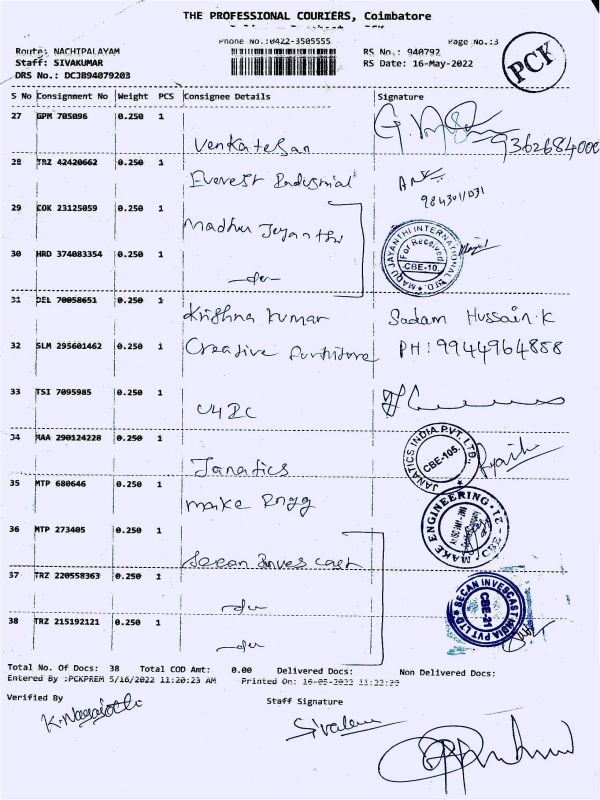 THE PROFESSIONAL COURIERS, Coimbatore
Phone No.:0422-3505555 Page No.:3
Route: NACHIPALAYAM RS No.: 940792
Staff: SIVAKUMAR RS Date: 16-May-2022
DRS No.: DCJB94079203
PCK
S No Consignment No Weight PCS Consignee Details Signature
27 GPM 705096 0.250 1 Venkatesan
28 TRZ 42420662 0.250 1 Everest Industrial
29 COK 23125059 0.250 1 Madhu Jeyanthi
30 HRD 374083354 0.250 1 -do-
For Received
CBE-10.
31 DEL 70058651 0.250 1 Krishna Kumar Sadam Hussain.K
32 SLM 295601462 0.250 1 Creative Furniture PH: 9944964858
33 TSI 7095985 0.250 1
34 MAA 290124228 0.250 1 Janatics
JANATICS INDIA PVT. LTD.
CBE-105.
35 MTP 680646 0.250 1 Make Engg
MAKE ENGINEERING
36 MTP 273405 0.250 1 Secan Invescast
37 TRZ 220558363 0.250 1 -do-
SECAN INVESCAST INDIA PVT LTD
CBE-21
38 TRZ 215192121 0.250 1 -do-
Total No. Of Docs: 38 Total COD Amt: 0.00 Delivered Docs: Non Delivered Docs:
Entered By :PCKPREM 5/16/2022 11:20:23 AM Printed On: 16-05-2022 11:22:22
Verified By Staff Signature